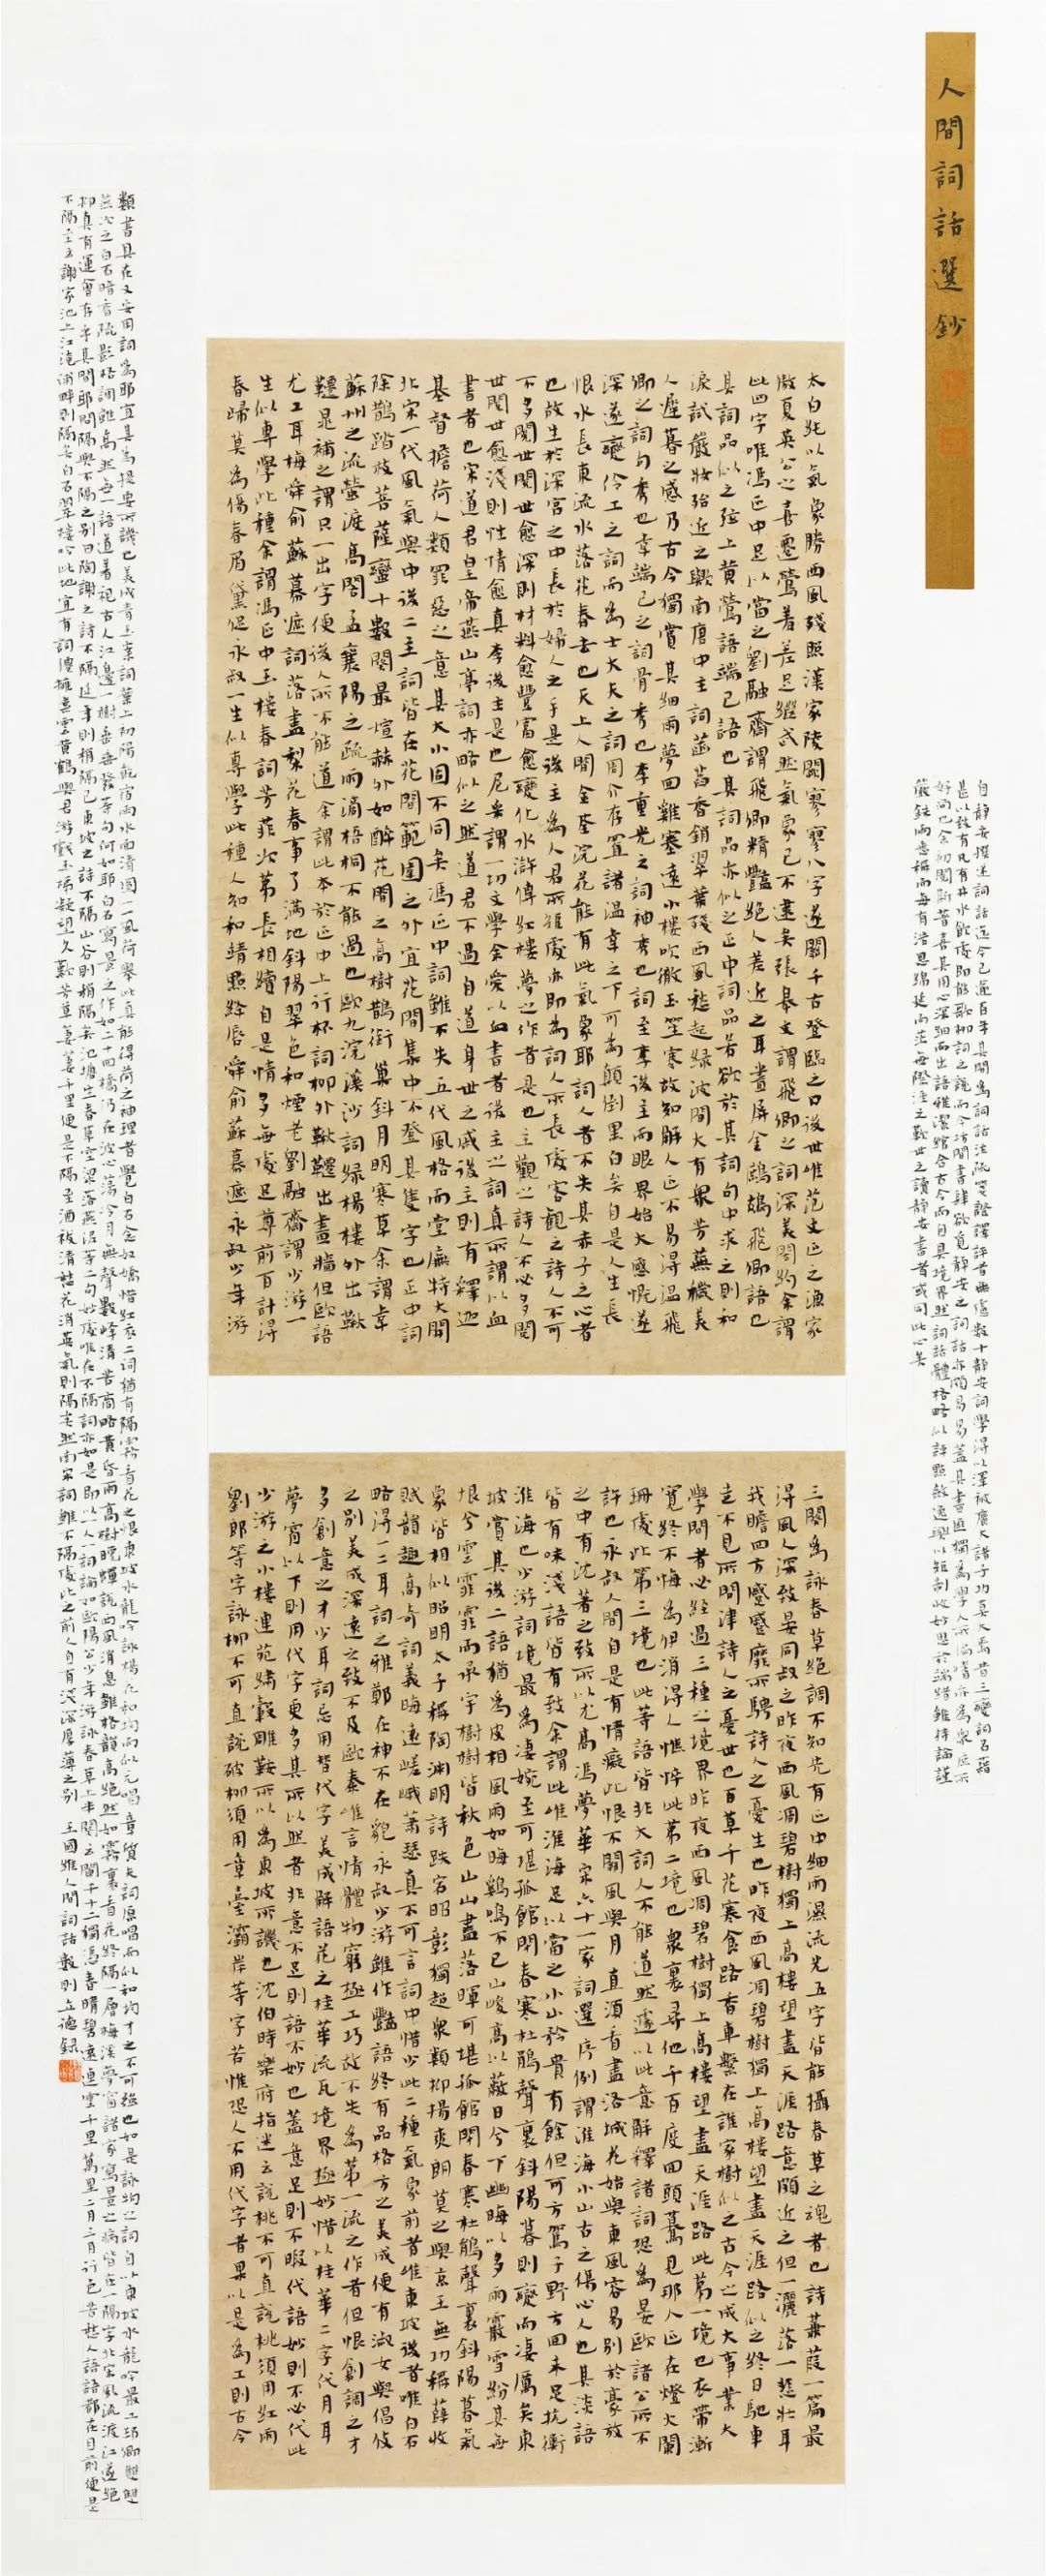 人間詞話選鈔
太白純以氣象勝西風殘照漢家陵闕寥寥八字遂關千古登臨之口後世唯范文正之漁家
傲夏英公之喜遷鶯差足繼武然氣象已不逮矣張皋文謂飛卿之詞深美閎約余謂
此四字唯馮正中足以當之劉融齋謂飛卿精豔絕人差近之耳畫屏金鷓鴣飛卿語也
其詞品似之弦上黃鶯語端己語也其詞品亦似之正中詞品若欲於其詞句中求之則和
淚試嚴妝殆近之歟南唐中主詞菡萏香銷翠葉殘西風愁起綠波間大有衆芳蕪穢美
人遲暮之感乃古今獨賞其細雨夢回雞塞遠小樓吹徹玉笙寒故知解人正不易得溫飛
卿之詞句秀也韋端己之詞骨秀也李重光之詞神秀也詞至李後主而眼界始大感慨遂
深遂變伶工之詞而為士大夫之詞周介存置諸溫韋之下可為顛倒黑白矣自是人生長
恨水長東流水落花春去也天上人間金荃浣花能有此氣象耶詞人者不失其赤子之心者
也故生於深宮之中長於婦人之手是後主為人君所短處亦即為詞人所長處客觀之詩人不可
不多閱世閱世愈深則材料愈豐富愈變化水滸傳紅樓夢之作者是也主觀之詩人不必多閱
世閱世愈淺則性情愈真李後主是也尼采謂一切文學余愛以血書者後主之詞真所謂以血
書者也宋道君皇帝燕山亭詞亦略似之然道君不過自道身世之戚後主則有釋迦
基督擔荷人類罪惡之意其大小固不同矣馮正中詞雖不失五代風格而堂廡特大開
北宋一代風氣與中後二主詞皆在花間範圍之外宜花間集中不登其隻字也正中詞
除鵲踏枝菩薩蠻十數闋最煊赫外如醉花間之高樹鵲銜巢斜月明寒草余謂韋
蘇州之流螢渡高閣孟襄陽之疏雨滴梧桐不能過也歐九浣溪沙詞綠楊樓外出鞦
韆晁補之謂只一出字便後人所不能道余謂此本於正中上行杯詞柳外鞦韆出畫牆但歐語
尤工耳梅舜俞蘇幕遮詞落盡梨花春事了滿地斜陽翠色和煙老劉融齋謂少游一
生似專學此種余謂馮正中玉樓春詞芳菲次第長相續自是情多無處足尊前百計得
春歸莫為傷春眉黛促永叔一生似專學此種人知和靖點絳唇舜俞蘇幕遮永叔少年游
三闋為詠春草絕調不知先有正中細雨濕流光五字皆能攝春草之魂者也詩蒹葭一篇最
得風人深致晏同叔之昨夜西風凋碧樹獨上高樓望盡天涯路意頗近之但一灑落一悲壯耳
我瞻四方蹙蹙靡所騁詩人之憂生也昨夜西風凋碧樹獨上高樓望盡天涯路似之終日馳車
走不見所問津詩人之憂世也百草千花寒食路香車繫在誰家樹似之古今之成大事業大
學問者必經過三種之境界昨夜西風凋碧樹獨上高樓望盡天涯路此第一境也衣帶漸
寬終不悔為伊消得人憔悴此第二境也衆裏尋他千百度回頭驀見那人正在燈火闌
珊處此第三境也此等語皆非大詞人不能道然遽以此意解釋諸詞恐為晏歐諸公所不
許也永叔人間自是有情癡此恨不關風與月直須看盡洛城花始與東風容易別於豪放
之中有沈著之致所以尤高馮夢華宋六十一家詞選序例謂淮海小山古之傷心人也其淡語
皆有味淺語皆有致余謂此唯淮海足以當之小山矜貴有餘但可方駕子野方回未足抗衡
淮海也少游詞境最為淒婉至可堪孤館閉春寒杜鵑聲裏斜陽暮則變而淒厲矣東
坡賞其後二語猶為皮相風雨如晦雞鳴不已山峻高以蔽日兮下幽晦以多雨霰雪紛其無
垠兮雲霏霏而承宇樹樹皆秋色山山盡落暉可堪孤館閉春寒杜鵑聲裏斜陽暮氣
象皆相似昭明太子稱陶淵明詩跌宕昭彰獨超衆類抑揚爽朗莫之與京王無功稱薛收
賦韻趣高奇詞義晦遠嵯峨蕭瑟真不可言詞中惜少此二種氣象前者唯東坡後者唯白石
略得一二耳詞之雅鄭在神不在貌永叔少游雖作豔語終有品格方之美成便有淑女與倡伎
之別美成深遠之致不及歐秦唯言情體物窮極工巧故不失為第一流之作者但恨創調之才
多創意之才少耳詞忌用替代字美成解語花之桂華流瓦境界極妙惜以桂華二字代月耳
夢窗以下則用代字更多其所以然者非意不足則語不妙也蓋意足則不暇代語妙則不必代此
少游之小樓連苑繡轂雕鞍所以為東坡所譏也沈伯時樂府指迷云說桃不可直說桃須用紅雨
劉郎等字詠柳不可直說破柳須用章臺灞岸等字若惟恐人不用代字者果以是為工則古今
類書具在又安用詞為耶宜其為提要所譏也美成青玉案詞葉上初陽乾宿雨水面清圓一一風荷舉此真能得荷之神理者覺白石念奴嬌惜紅衣二詞猶有隔霧看花之恨東坡水龍吟詠楊花和均而似元唱章質夫詞原唱而似和均才之不可強也如是詠物之詞自以東坡水龍吟最工邦卿雙雙
燕次之白石暗香疏影格調雖高然無一語道著視古人江邊一樹垂垂發等句何如耶白石寫景之作如二十四橋仍在波心蕩冷月無聲數峰清苦商略黃昏雨高樹晚蟬說西風消息雖格韻高絕然如霧裏看花終隔一層梅溪夢窗諸家寫景之病皆在一隔字北宋風流渡江遂絕
抑真有運會存乎其間耶問隔與不隔之別曰陶謝之詩不隔延年則稍隔已東坡之詩不隔山谷則稍隔矣池塘生春草空梁落燕泥等二句妙處唯在不隔詞亦如是即以一人一詞論如歐陽公少年游詠春草上半闋云闌干十二獨憑春晴碧遠連雲千里萬里二月三月行色苦愁人語語都在目前便是
不隔至云謝家池上江淹浦畔則隔矣白石翠樓吟此地宜有詞仙擁素雲黃鶴與君游戲玉梯凝望久歎芳草萋萋千里便是不隔至酒祓清愁花消英氣則隔矣然南宋詞雖不隔處比之前人自有淺深厚薄之別 王國維人間詞話數則立德錄